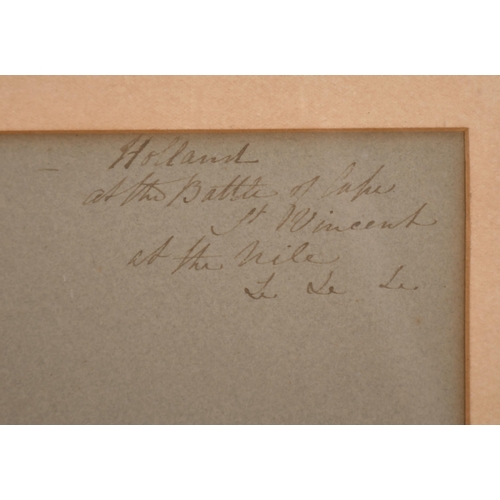 Holland
at the Battle of Cape
St Vincent
at the Nile